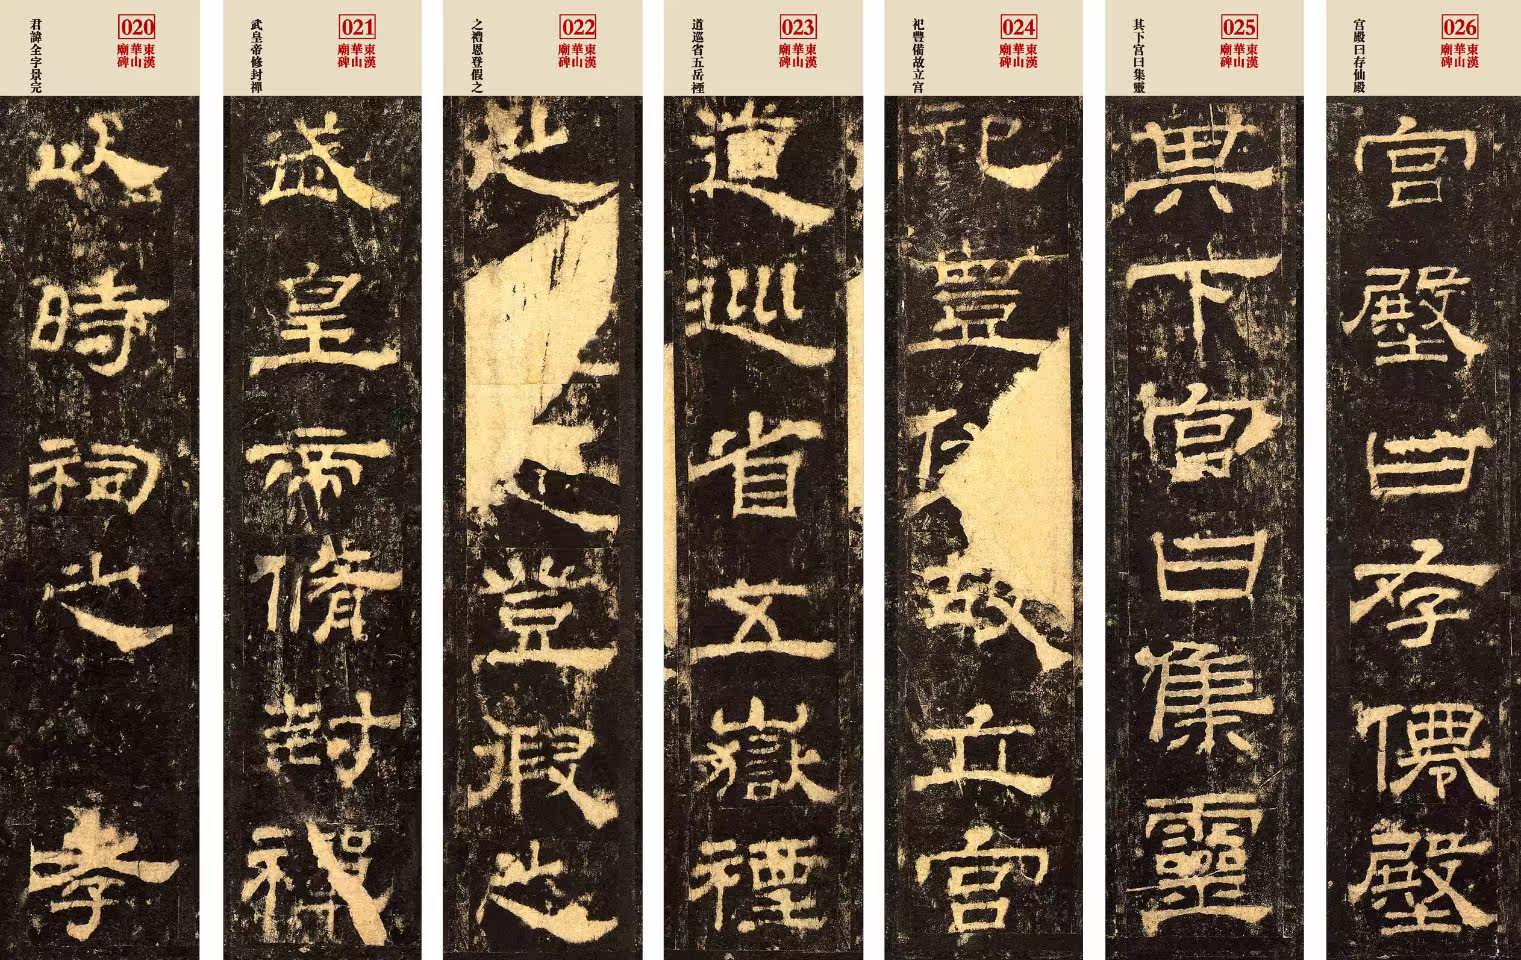 020
東漢
華山
廟碑
君諱全字景完
以時祠之孝
021
東漢
華山
廟碑
武皇帝修封禪
武皇帝脩封禪
022
東漢
華山
廟碑
之禮恩登假之
之登假之
023
東漢
華山
廟碑
道巡省五岳禋
道巡省五嶽禋
024
東漢
華山
廟碑
祀豐備故立宮
祀豐故立宮
025
東漢
華山
廟碑
其下宮曰集靈
其下宮曰集靈
026
東漢
華山
廟碑
宮殿曰存仙殿
宮殿曰存僊殿